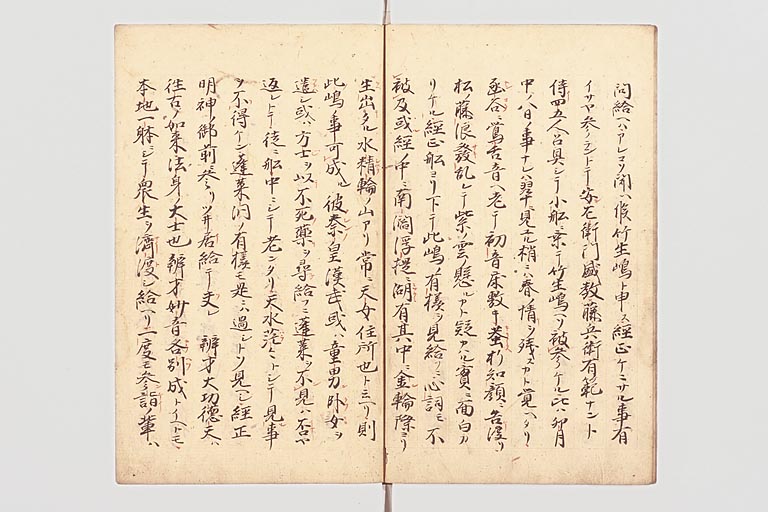 問給ヘハアレコソ聞ヘ候竹生嶋ト申ス経正ケニサル事有
イサヤ参ラントテ安左衛門盛教藤兵衛有範ナント
侍四五人召具シテ小船ニ乗テ竹生嶋ヘソ被参ケル比ハ卯月
中ノ八日ノ事ナレハ翠ニ見ユル梢ニハ春ノ情ヲ残スカト覚ヘタリ
谷ノ鴬舌音ヘ老テ初音床敷キ郭公折知顔ニ告渡リ
松ノ藤浪發乱レテ紫ノ雲ノ懸ルカト疑アル實ニ面白カ
リケル経正船ヨリ下テ此嶋ノ有様ヲ見給フニ心詞モ不
被及或経ノ中ニ南閻浮提ニ湖有其中ニ金輪際ヨリ
生出タル水精輪ノ山アリ常ニ天女住所也ト云リ則
此嶋ノ事可成ル彼秦皇漢武或ハ童男丱女ヲ
遣シ或ハ方士ヲ以不死藥ヲ尋給フニ蓬莱ヲ不見ハ否ヤ
返シトテ徒ニ船中ニシテ老ンタリ天水茫々トシテ見事
ヲ不得ケン蓬莱洞ノ有様モ是ニハ過シトソ見ヘシ経正
明神ノ御前ニ参リツヰ居給テ夫レ 辨才大功徳天ハ
往古ノ如来法身ノ大士也辨才妙音各別ノ成トイヘトモ
本地一躰ニシテ衆生ヲ濟渡シ給ヘリ一度モ参詣ノ輩ハ